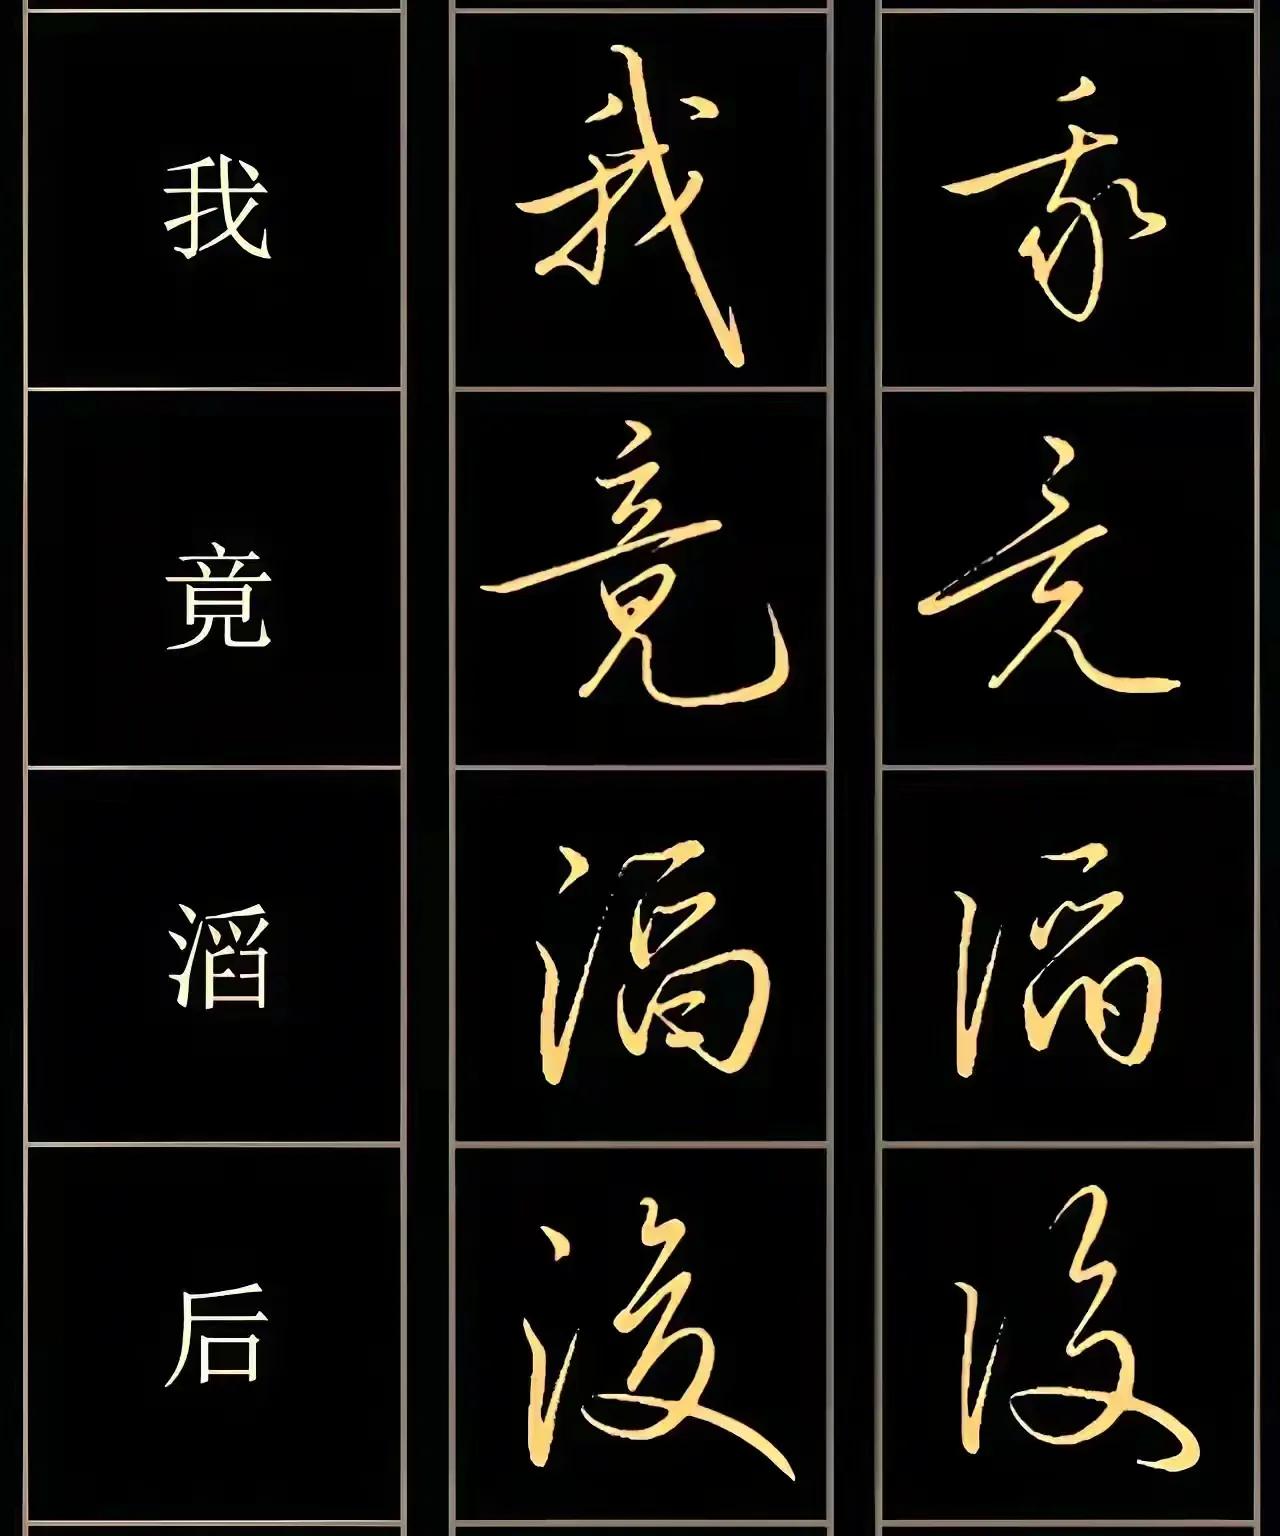 我 我 我
竟 竟 竟
滔 滔 滔
后 後 後